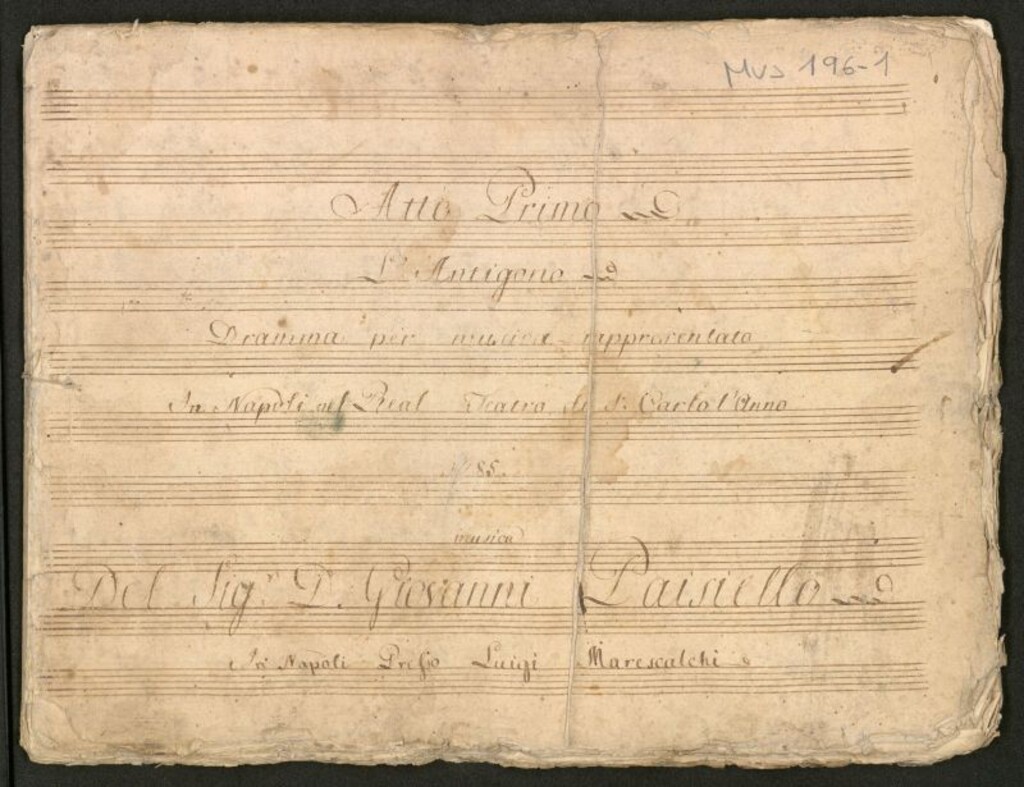 Mus 196-1
Atto Primo
L'Antigono
Dramma per musica rappresentato
In Napoli nel Real Teatro di S. Carlo l'Anno
85.
musica
Del Sig.r D. Giovanni Paisiello
In Napoli Presso Luigi Marescalchi